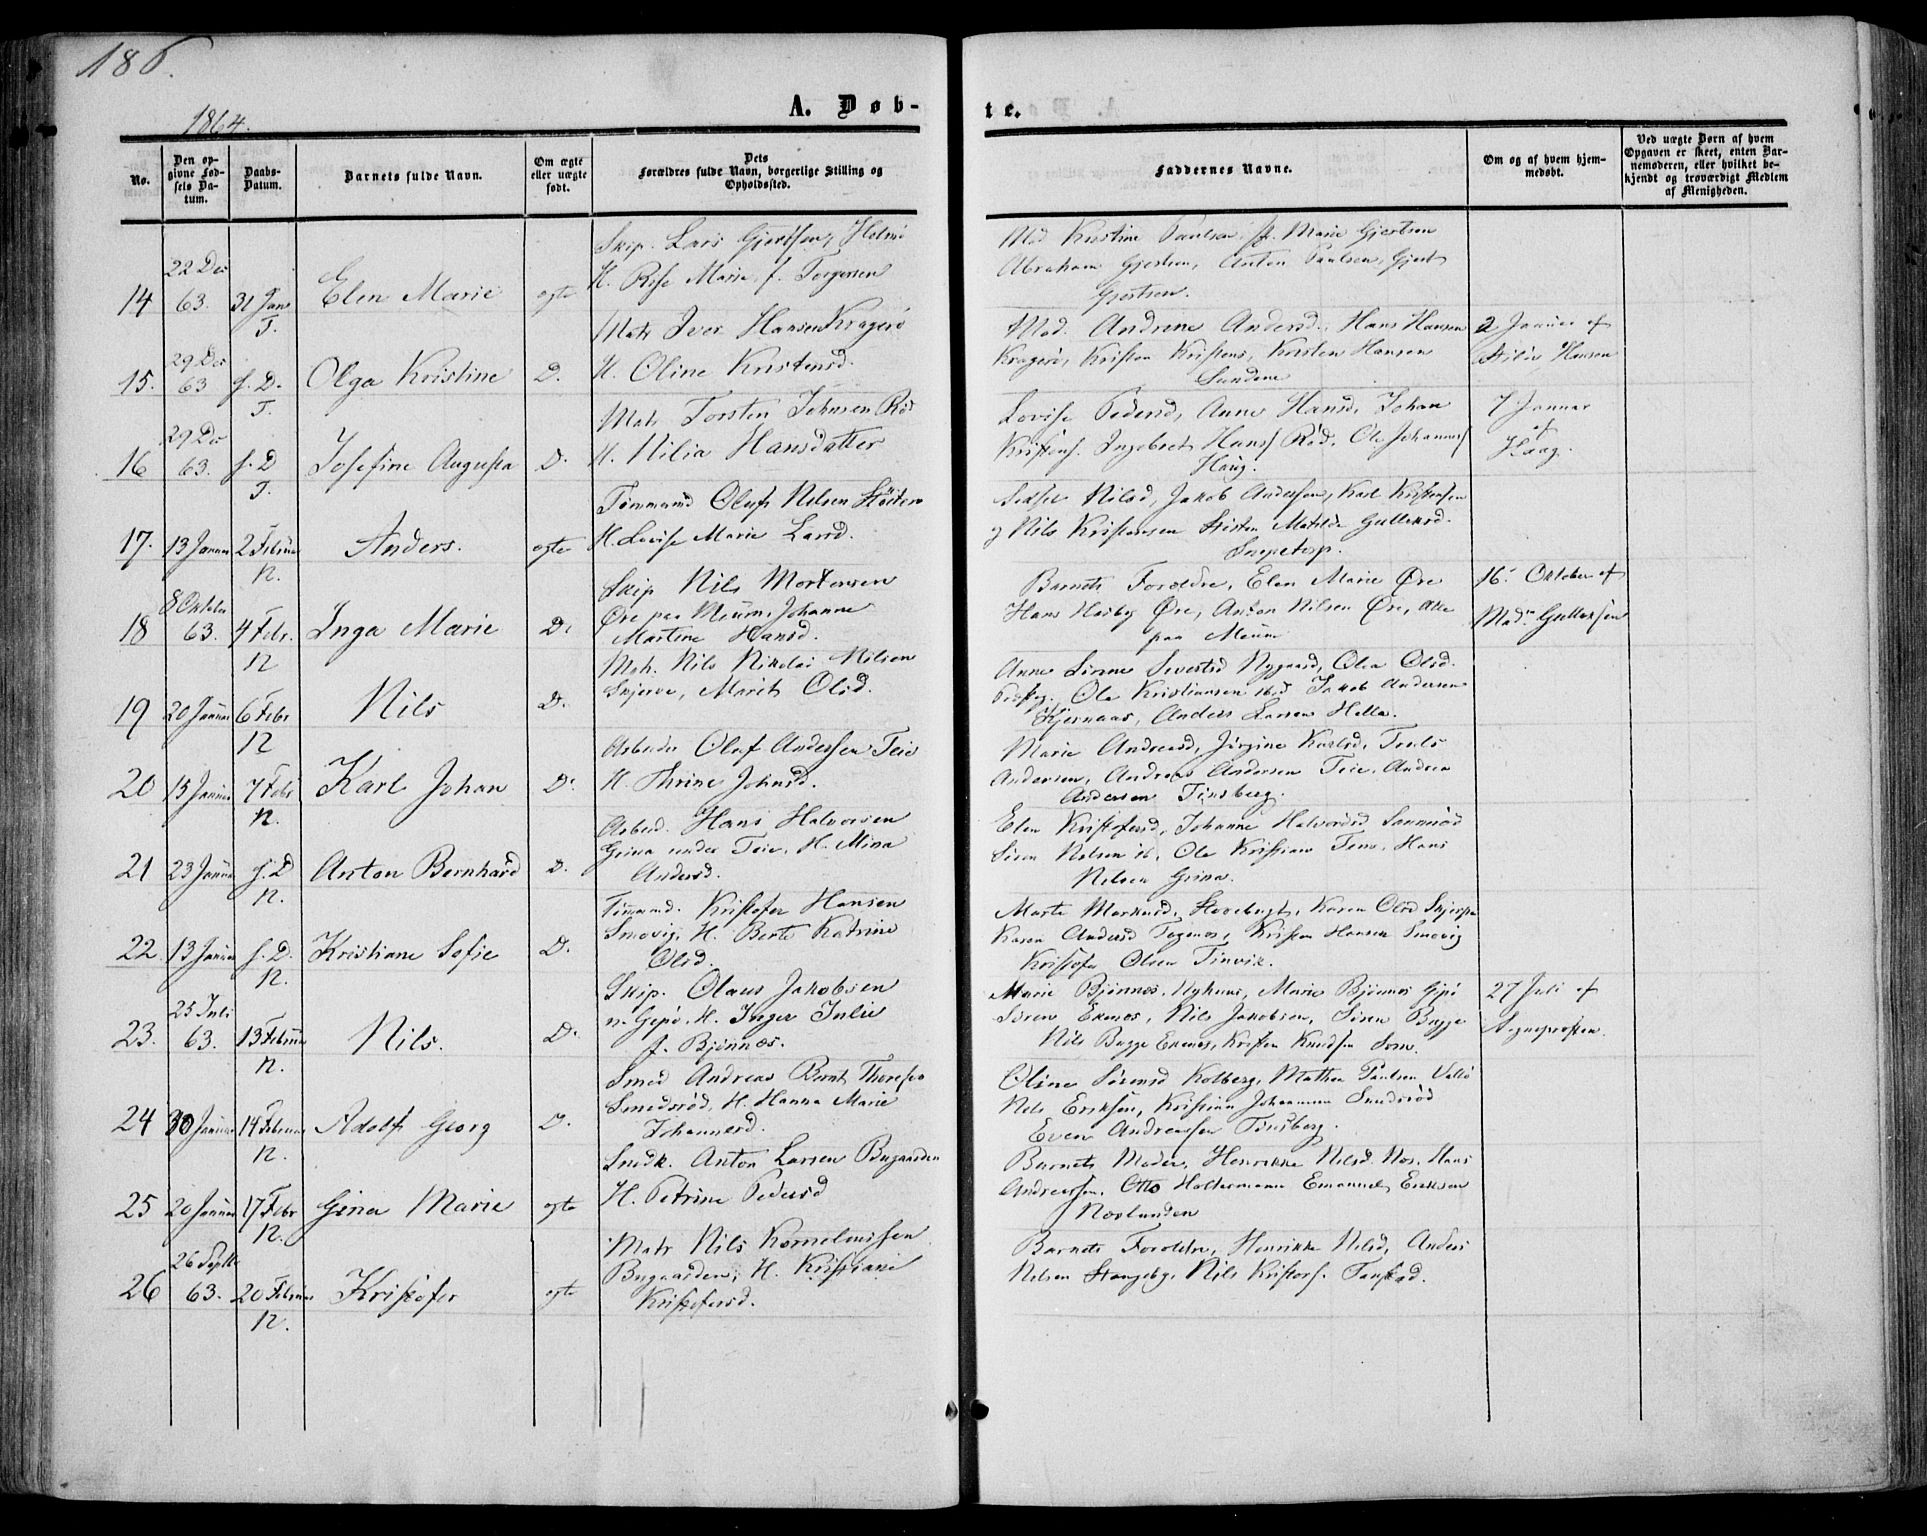 186.
1864.
A. Døb-
te.
No.
Den op-
givne Fød-
sels Da-
tum.
Daabs-
Datum.
Barnets fulde Navn.
Om ægte
eller uægte
født.
Dets
Forældres fulde Navn, borgerlige Stilling og
Opholdssted.
Faddernes Navne.
Om og af hvem hjem-
medøbt.
Ved uægte Børn af hvem
Opgaven er skeet, enten Bar-
nemoderen, eller hvilket be-
kjendt og troværdigt Medlem
af Menigheden.
14
22 Des
63.
31 Jan
T.
Elen Marie
egte
Skip. Lars Gjertsen,
H. Marie f. Torgersen
Mad Kristine Paulsen, J. Marie Gjertsen
Abraham Gjertsen, Anton Paulsen, Gjert
Gjertsen.
15.
29 Des
63
s. D.
T.
Olga Kristine
D.
Matr Iver Hansen Kragerø
H. Oline Kristensd.
Mad. Andrine Andersd., Hans Hansen
Kragerø, Kristen Kristens, Kristen Hansen
Sundene
2 Januar af
Hansen
16
29 Des
63.
s. D
T.
Josefine Augusta
D.
Matr Torsten Johnsen Rød
H. Nilia Hansdatter
Lovise Pedersd, Anne Hansd, Johan
Kristens. Ingebret Hanss Rød, Ole Johanness
Haug.
7 Januar
af
Haag.
17.
13 Januar
2 Februar
N.
Anders.
egte
Tømmermd Oluf Nilsen
H. Lovise Marie Larsd.
Nilsd, Jakob Andersen, Karl Kristensen
og Nils Kristensen Matilde Gulliksd.
Snipetorp.
18
8 Oktober
63.
4 Febr.
N
Inga Marie
D.
Skip Nils Mortensen
Øre paa Meum, Johanne
Martine Hansd.
Barnets Forældre, Elen Marie Øre
Hans Øre, Anton Nilsen Øre, alle
paa Meum
16. Oktober af
Mad. Gulliksen
19
20 Januar
6 Febr
N
Nils
D.
Matr. Nils Nikolai Nilsen
Skjerve, Marit Olsd.
Anne Sirene Sivertsd Nygaard, Olea Olsd.
Ole Kristiansen ibid Jakob Andersen
Kjernaas, Anders Larsen Hella.
20
15 Januar
7 Febr
N.
Karl Johan
D.
Arbeder Oluf Andersen Teie
H. Thrine Johnsd.
Marie Andreasd, Jørgine Karlsd, Truls
Andersen, Andreas Andersen Teie, Andrea
Andersen Tønsberg.
21
23 Januar
s. D
N.
Anton Bernhard
D.
Arbed. Hans Halvorsen
Grina under Teie, H. Mina
Andersd.
Elen Kristofersd, Johanne Halvorsd
Søren Nilsen ib. Ole Kristians Hans
Nilsen Grina.
22.
13 Januar
s. D.
N.
Kristiane Sofie
D.
Tømmd. Kristofer Hansen
Smovig, H. Berte Katrine
Olsd.
Marte Karen Olsd
Karen Andersd Kristen Hansen Smovig
Kristofer Olsen
23.
25 Juli
63.
13 Februar
N.
Nils.
D.
Skip. Olaus Jakobsen
H. Inger Julie
f. Bjønnes.
Marie Bjønnes, Marie Bjønnes Gipø
Søren Ekenes, Nils Jakobsen, Søren Bugge
Nils Bugge Ekenes, Kristen Knudsen
27 Juli af
Sogneprosten.
24
30 Januar
14 Februar
N.
Adolf Georg
D.
Smed Andreas Bernt
Smedsrød, H. Hanna Marie
Johannesd.
Oline Sørensd Kolberg, Mathea Paulsen Vallø
Nils Eriksen, Kristian Johannesen Sundsrød
Even Andreassen Tønsberg.
25
20 Januar
17 Febr
N.
Gina Marie
egte
Snedk. Anton Larsen Bugaarden
H. Petrine Pedersd
Barnets Moder, Henrikke Nilsd. Nes, Hans
Andreassen, Otto Holtermann Emanuel Eriksen
Neslunden
26
26 Septbr
63.
20 Februar
N.
Kristofer
egte
Matr Nils Korneliussen
Bugaarden, H. Kristiane
Kristofersd.
Barnets Forældre, Henrikke Nilsd, Anders
Nilsen Stangeby, Nils Kristofs.